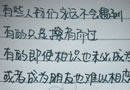 有些人我们永远不会遇到
有的只是擦肩而过
有的即使相识也未必成为
或者成为朋友也难以相处